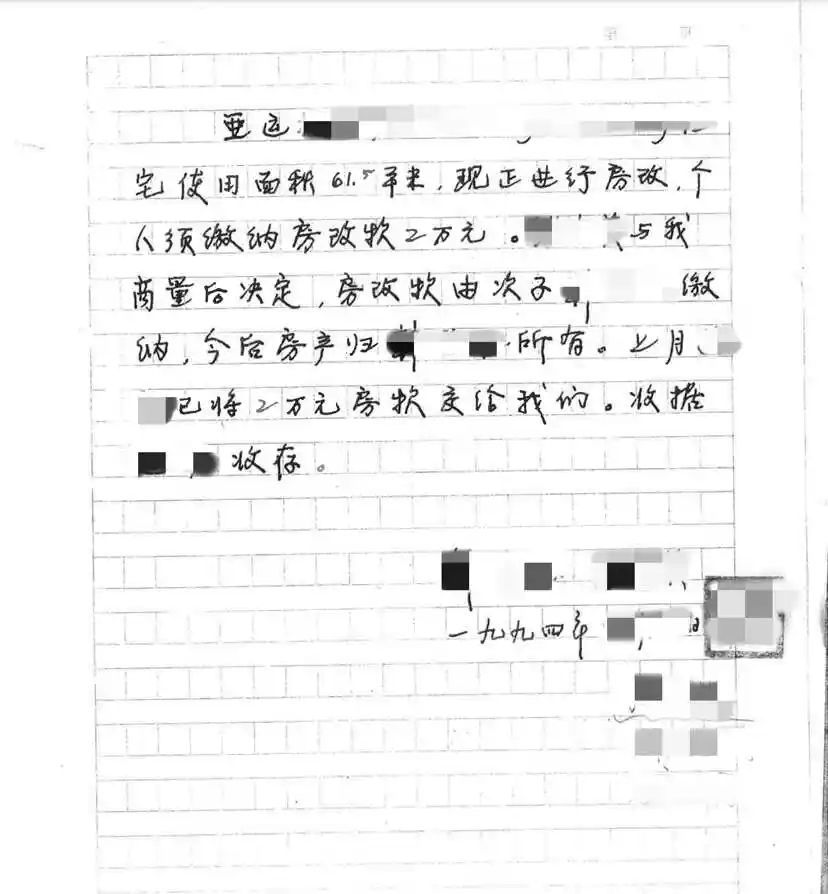 亚运
宅使用面积61.5平米，现正进行房改，个
人须缴纳房改款2万元。与我
商量后决定，房改款由次子缴
纳，今后房产归所有。上月、
已将2万元房款交给我们。收据
收存。
一九九四年 日